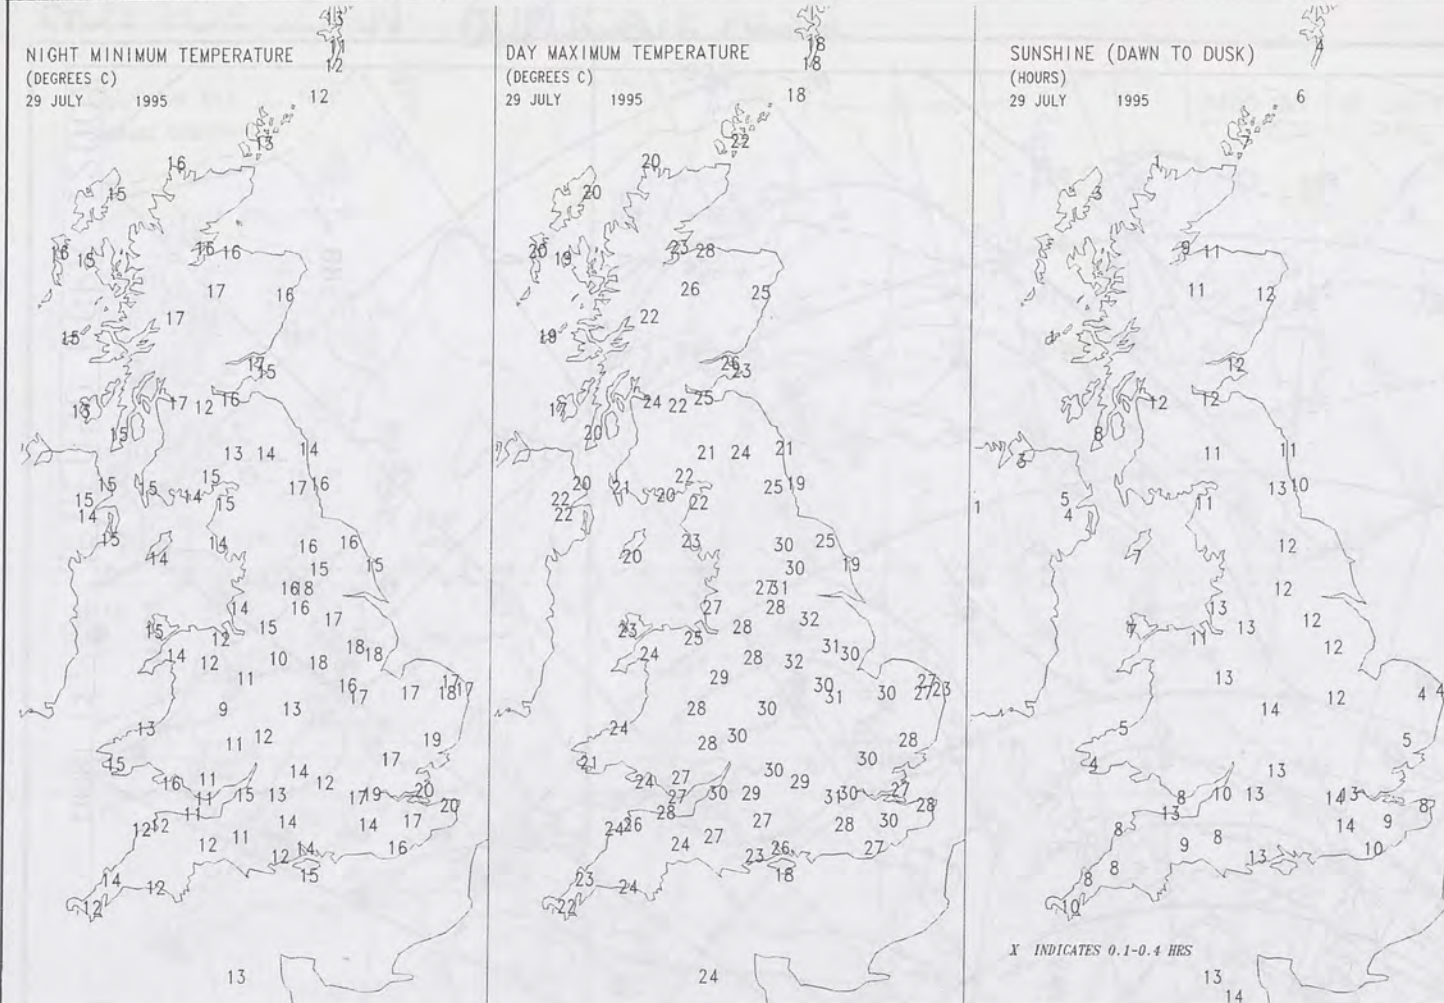 NIGHT MINIMUM TEMPERATURE
(DEGREES C)
29 JULY 1995
13
11
12
12
13
16
15
16 15 16 16
17 16
17
15
17
15
13 17 12 16
15
13 14 14
15
15 15 14 17 16
15
14
15 14 16 16
14
15 15
16 18
14 16
17
15 12 15
14 12 10 18 18 18
11
16 17 17 17 18 17
9 13
13
11 12 19
15 17
16 11 14 12
11 15 13 17 19 20
11 20
12 12 14 14 17
12 11
12 14 16
14 12 15
12
13
DAY MAXIMUM TEMPERATURE
(DEGREES C)
29 JULY 1995
18
18
18
22
20
20
20 19 23 28
26 25
22
19
26
23
17 24 22 25
20
21 24 21
22
20 21 20 25 19
22 22
22
20 23 30 25
30 19
27 31
27 28
32
23 25 28
24 28 32 31 30
29
30 31 30 27 27 23
28 30
24
28 30 30
21 30
24 27 30 29
27 30 29 31 30 27
28 28
24 26 27 28 30
24 27
23 26 27
23 24 18
22
24
SUNSHINE (DAWN TO DUSK)
(HOURS)
29 JULY 1995
4
6
7
1
3
9 11
8 11 12
1
12
12 12
8
3 11 11
13 10
1 5 4 11
7 12
12
13
7 11 13 12
12
13 12 4 4
14
5 5
4 13
8 10 13 14 13 8
13 14 9
8 9 8 10
13
8 8
10
X INDICATES 0.1-0.4 HRS
13
14